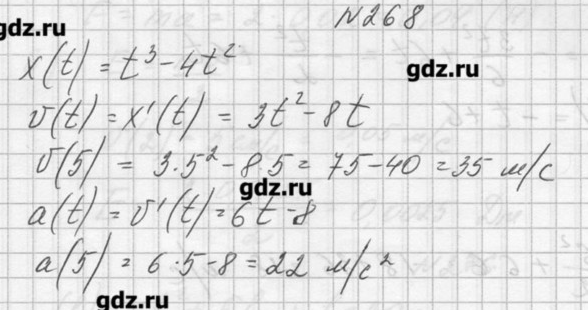 №268
gdz.ru
x(t) = t³ - 4t²
gdz.ru
v(t) = x'(t) = 3t² - 8t
v(5) = 3·5² - 8·5 = 75 - 40 = 35 м/с
gdz.ru
a(t) = v'(t) = 6t - 8
a(5) = 6·5 - 8 = 22 м/с²
gdz.ru